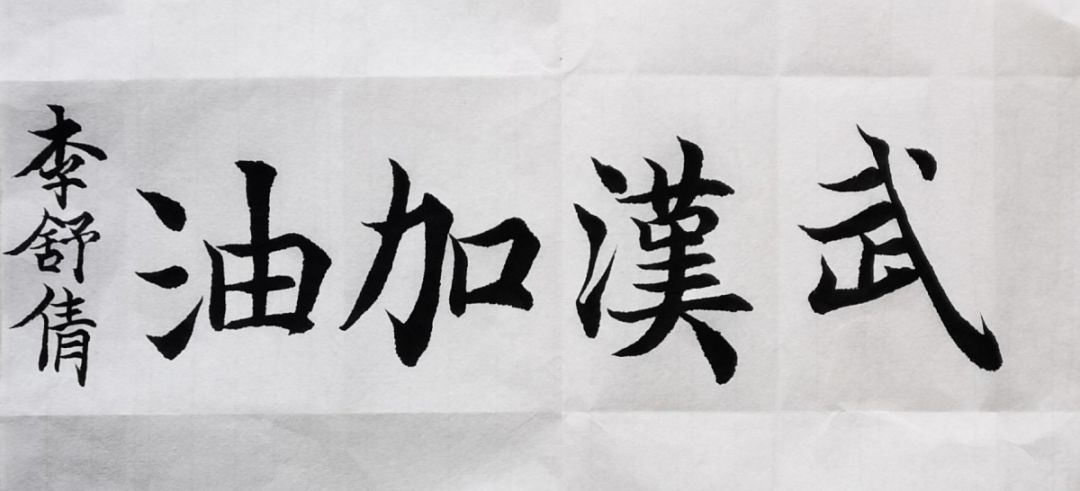 武漢加油
李舒倩